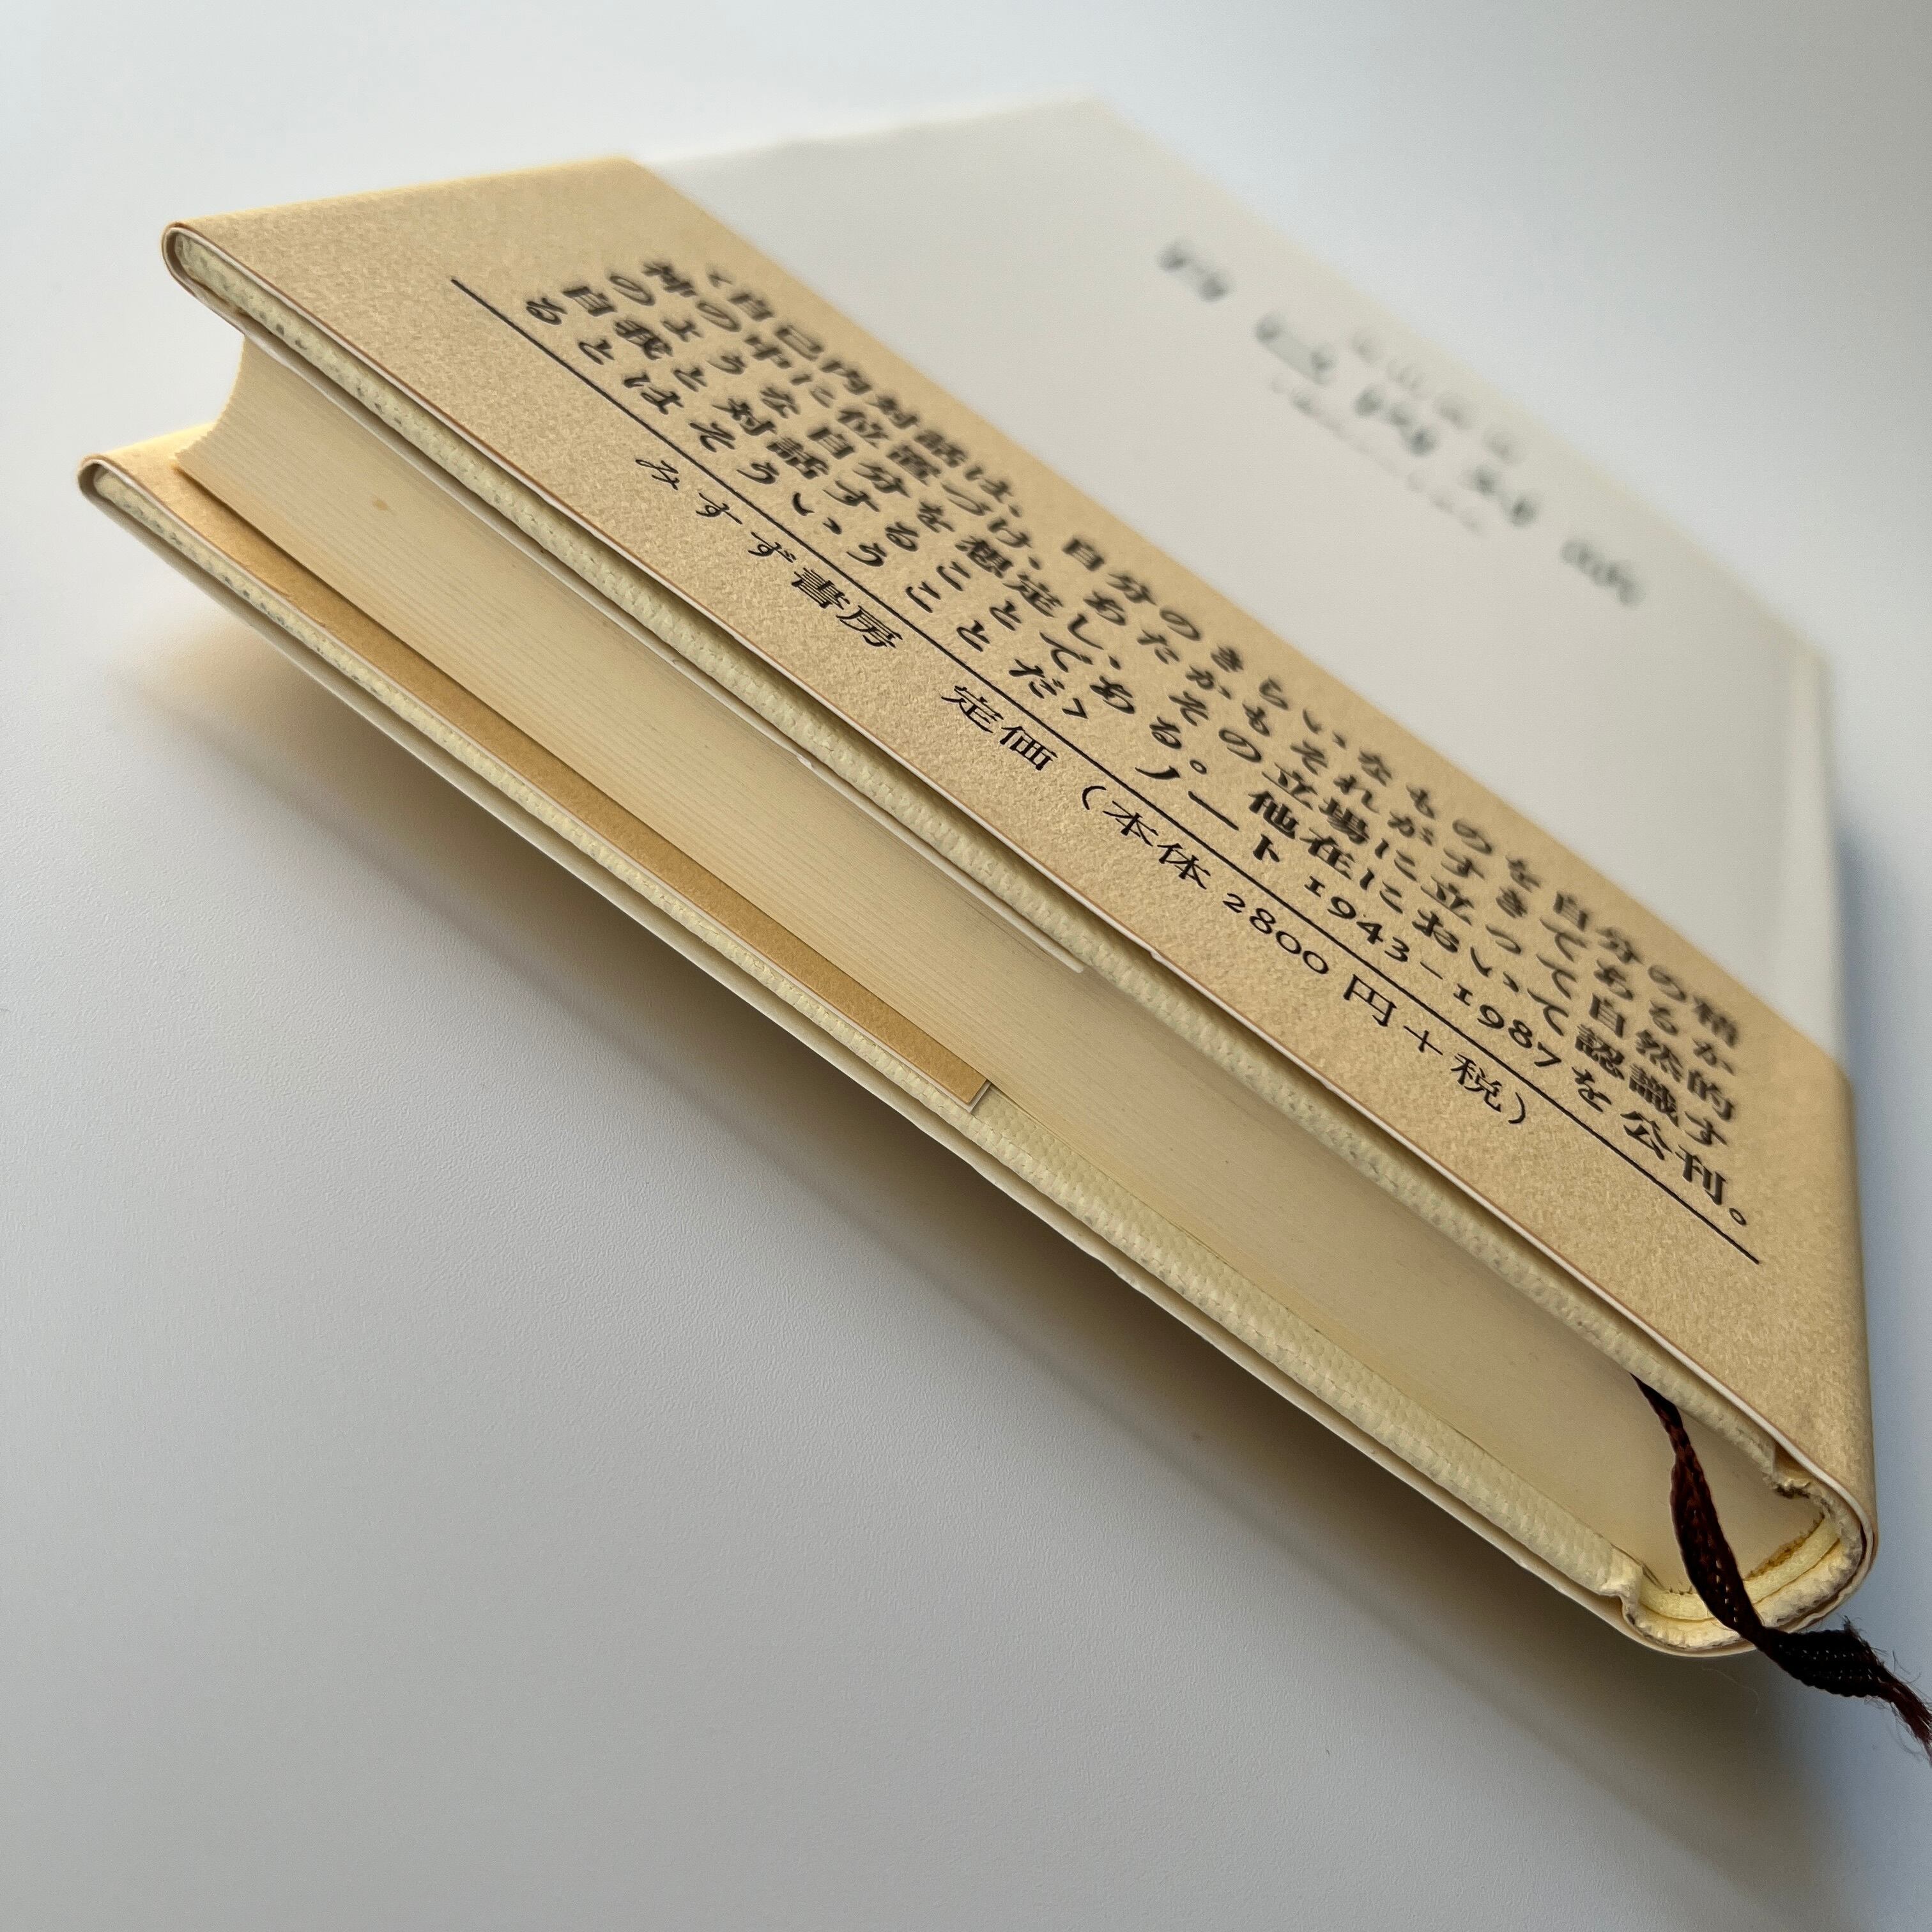 〈自己内対話は、自分のきらいなものを自分の精
神の中に位置づけ、あたかもそれがすきであるか
のような自分を想定し、その立場に立って自然的
自我と対話することである。他在において認識す
るとはそういうことだ〉ノート1943-1987を公刊。
みすず書房 定価（本体 2800 円＋税）